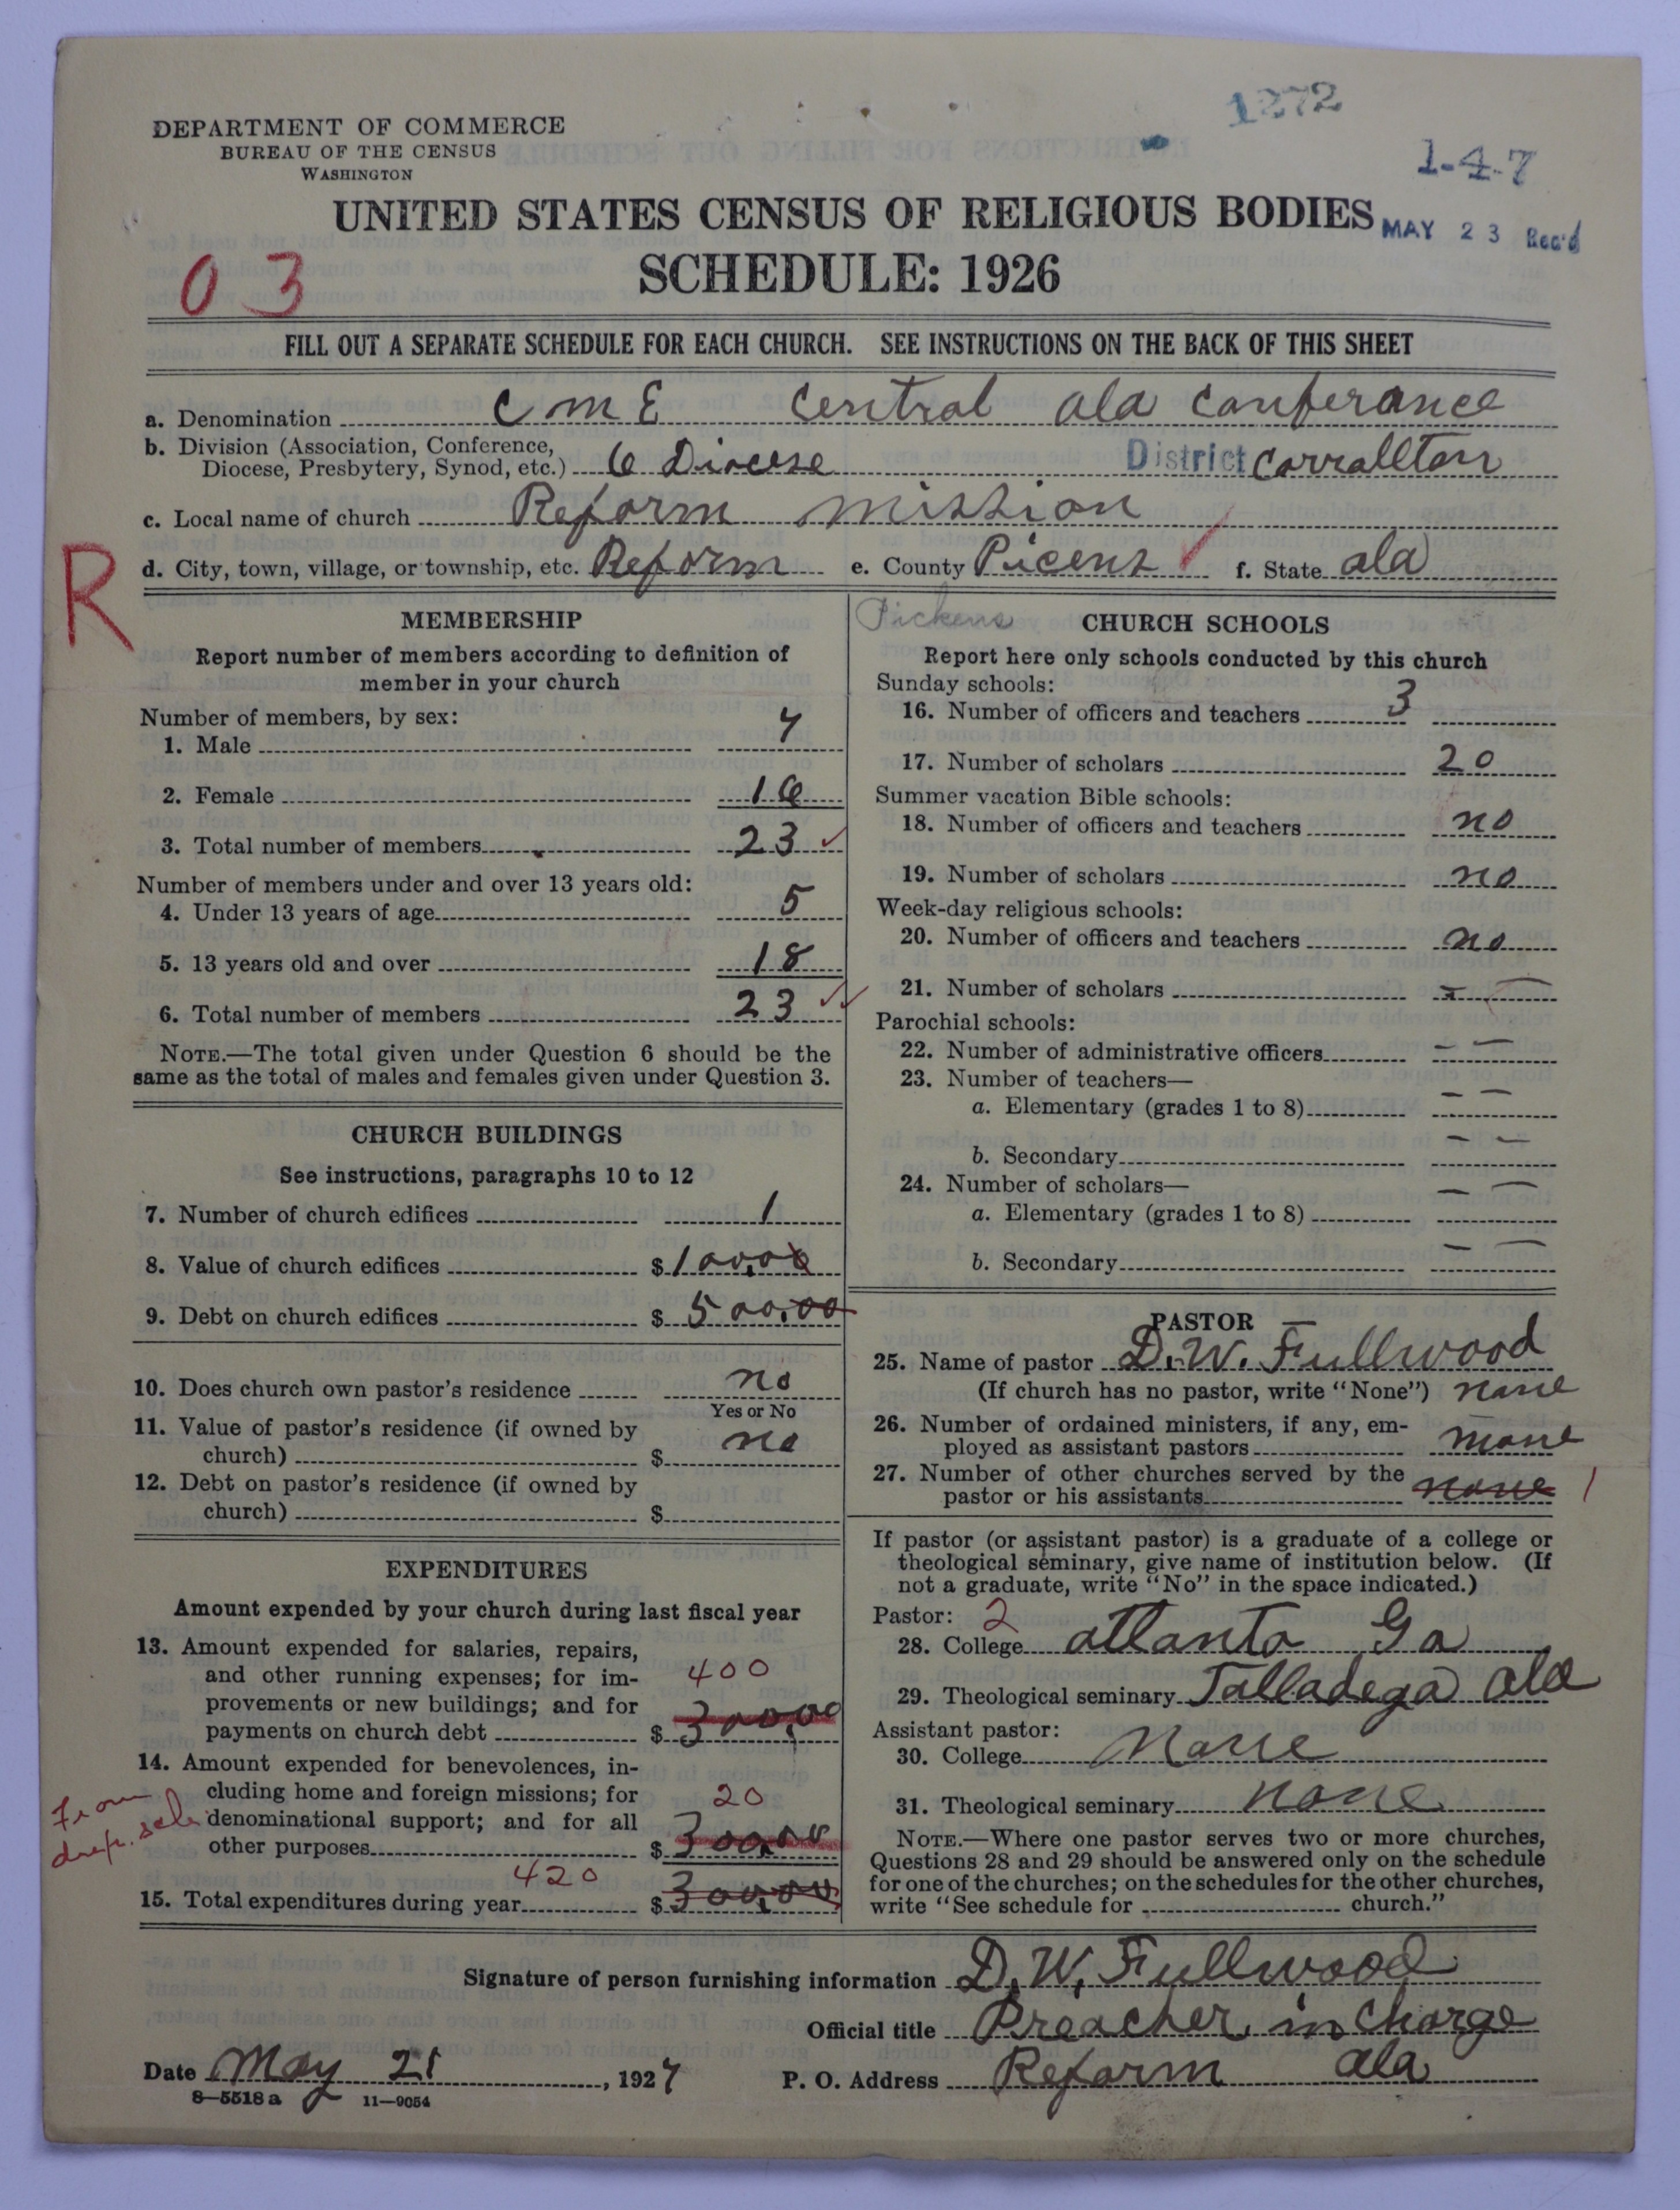 1272
DEPARTMENT OF COMMERCE
BUREAU OF THE CENSUS
WASHINGTON
1-4-7
UNITED STATES CENSUS OF RELIGIOUS BODIES
MAY 23 Rec'd
SCHEDULE: 1926
03
FILL OUT A SEPARATE SCHEDULE FOR EACH CHURCH. SEE INSTRUCTIONS ON THE BACK OF THIS SHEET
a. Denomination C M E Central Ala Conferance
b. Division (Association, Conference,
Diocese, Presbytery, Synod, etc.) 6 Diocese District Carrollton
c. Local name of church Reform Mission
d. City, town, village, or township, etc. Reform e. County Picens f. State Ala
R
Pickens
MEMBERSHIP
Report number of members according to definition of
member in your church
Number of members, by sex:
1. Male 7
2. Female 16
3. Total number of members 23
Number of members under and over 13 years old:
4. Under 13 years of age 5
5. 13 years old and over 18
6. Total number of members 23
NOTE.—The total given under Question 6 should be the
same as the total of males and females given under Question 3.
CHURCH BUILDINGS
See instructions, paragraphs 10 to 12
7. Number of church edifices 1
8. Value of church edifices $ 100.00
9. Debt on church edifices $ 500.00
10. Does church own pastor's residence no
Yes or No
11. Value of pastor's residence (if owned by
church) $ no
12. Debt on pastor's residence (if owned by
church) $
EXPENDITURES
Amount expended by your church during last fiscal year
13. Amount expended for salaries, repairs,
and other running expenses; for im-
provements or new buildings; and for
payments on church debt $ 300.00
400
14. Amount expended for benevolences, in-
cluding home and foreign missions; for
denominational support; and for all
other purposes $ 300.00
20
From
dup. sch
420
15. Total expenditures during year $ 300.00
CHURCH SCHOOLS
Report here only schools conducted by this church
Sunday schools:
16. Number of officers and teachers 3
17. Number of scholars 20
Summer vacation Bible schools:
18. Number of officers and teachers no
19. Number of scholars no
Week-day religious schools:
20. Number of officers and teachers no
21. Number of scholars – –
Parochial schools:
22. Number of administrative officers – –
23. Number of teachers—
a. Elementary (grades 1 to 8) – –
b. Secondary – –
24. Number of scholars—
a. Elementary (grades 1 to 8) – –
b. Secondary – –
PASTOR
25. Name of pastor D. W. Fullwood
(If church has no pastor, write "None") none
26. Number of ordained ministers, if any, em-
ployed as assistant pastors none
27. Number of other churches served by the
pastor or his assistants none 1
If pastor (or assistant pastor) is a graduate of a college or
theological seminary, give name of institution below. (If
not a graduate, write "No" in the space indicated.)
Pastor: 2
28. College Atlanta Ga
29. Theological seminary Talladega Ala
Assistant pastor:
30. College None
31. Theological seminary none
NOTE.—Where one pastor serves two or more churches,
Questions 28 and 29 should be answered only on the schedule
for one of the churches; on the schedules for the other churches,
write "See schedule for church."
Signature of person furnishing information D. W. Fullwood
Official title Preacher in Charge
Date May 21, 1927 P. O. Address Reform Ala
8—5518a 11—9054